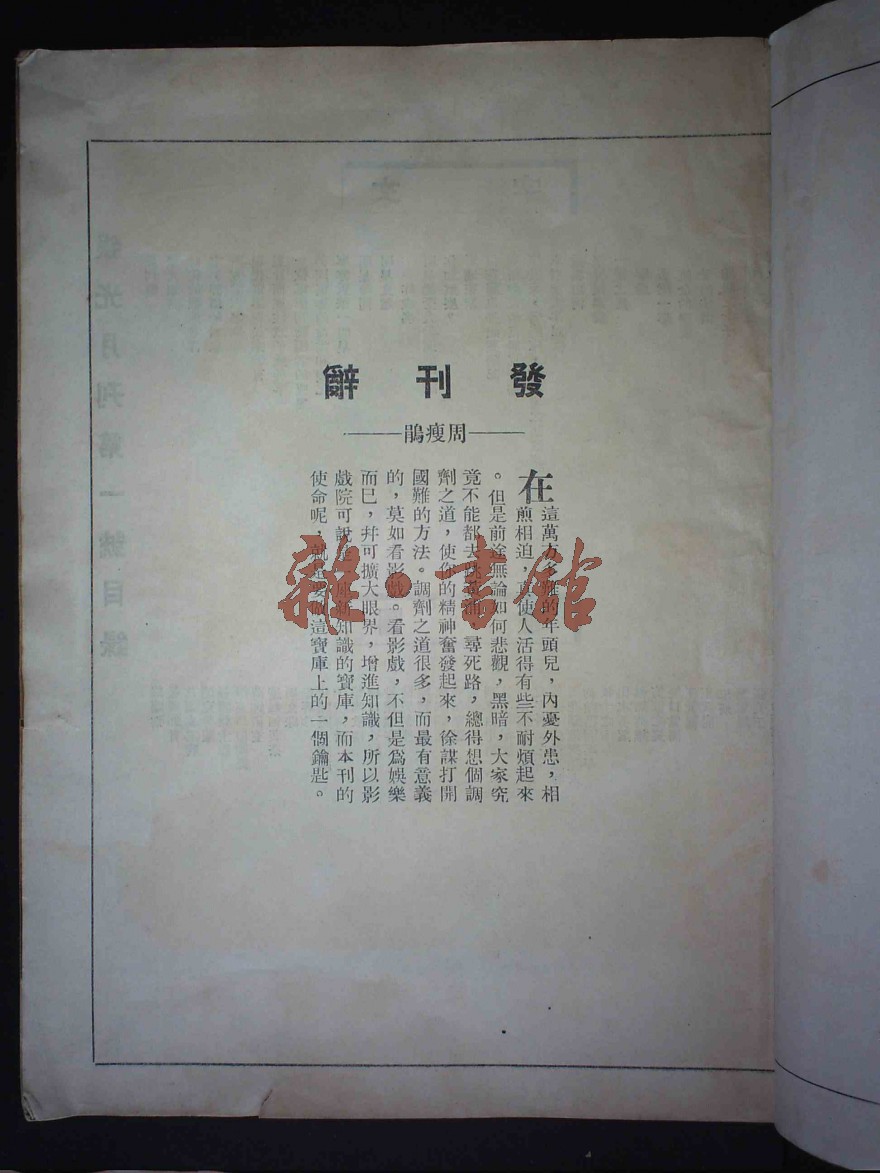 發刊辭
周瘦鵑
在這萬方多難的年頭兒,內憂外患,相
煎相迫,真使人活得有些不耐煩起來
。但是前途無論如何悲觀,黑暗,大家究
竟不能都去跳黃浦,尋死路,總得想個調
劑之道,使你的精神奮發起來,徐謀打開
國難的方法。調劑之道很多,而最有意義
的,莫如看影戲。看影戲,不但是爲娛樂
而已,幷可擴大眼界,增進知識,所以影
戲院可說是新知識的寶庫,而本刊的
使命呢,就是要做這寶庫上的一個鑰匙。
雜·書館
銀光月刊第一號目錄